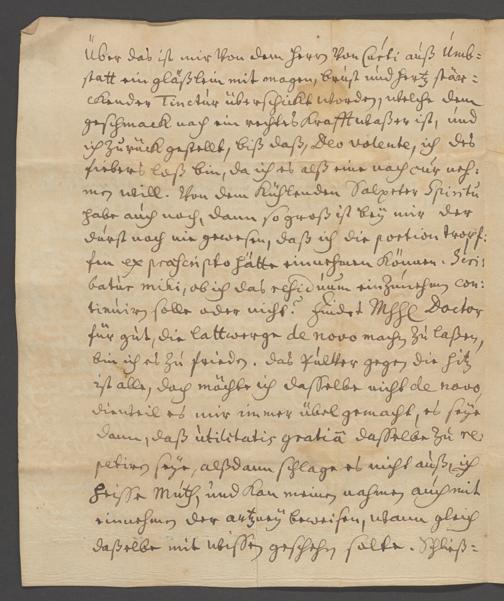 Über das ist mir von dem Herrn von Curti auß Umb-
statt ein gläßlein mit magen, brust und hertz stär-
ckender Tinctur überschickt worden, welche dem
geschmack nach ein rechtes Krafftwaßer ist, und
ich zurück gestellt, biß daß, Deo volente, ich des
fiebers loß bin, da ich es alß eine nach cur neh-
men will. Von dem Kühlenden Salpeter Spiritu
habe auch noch, dann so groß ist bey mir der
durst noch nie gewesen, daß ich die portion tropf-
fen ex praescripto hätte einnehmen können. Scri
batur mihi, ob ich das residuum einzunehmen con-
tinuiren solle oder nicht? Findet MhhE Doctor
für gut, die lattwerge de novo machen zu laßen,
bin ich es zu frieden. das Pulver gegen die hitz
ist alle, doch möchte ich dasselbe nicht de novo,
dieweil es mir immer übel gemacht, es seye
dann, daß utilitatis gratiâ dasselbe zu re-
petiren seye, alßdann schlage es nicht auß, ich
heisse Muth, und kan meinen nahmen auch mit
einnehmen der artzney beweisen, wann gleich
daßelbe mit wissen geschehen solte. Schließ-